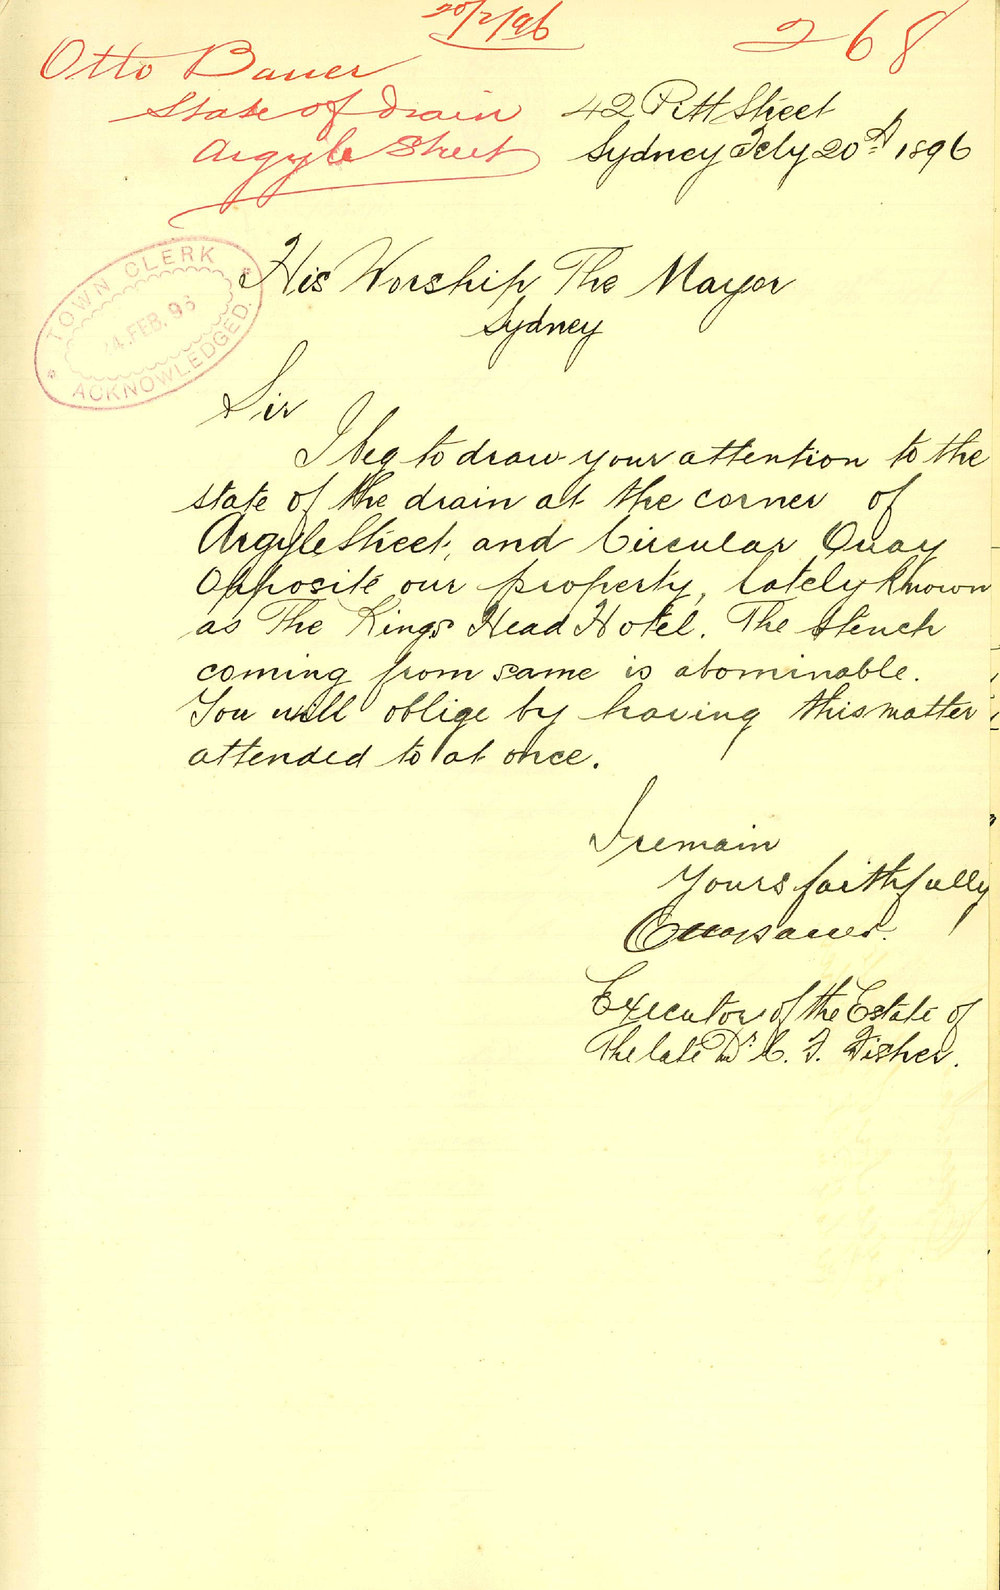 20/2/96
268
Otto Bauer
State of drain
Argyle Street
42 Pitt Street
Sydney Feby 20th 1896
TOWN CLERK
4. FEB. 96
ACKNOWLEDGED.
His Worship The Mayor
Sydney
Sir
I beg to draw your attention to the
state of the drain at the corner of
Argyle Street, and Circular Quay
Opposite our property, lately known
as The Kings Head Hotel. The stench
coming from same is abominable.
You will oblige by having this matter
attended to at once.
I remain
Yours faithfully
Otto Bauer.
Executor of the Estate of
The late Dr C. F. Fisher.